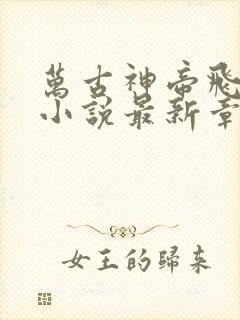 萬古神帝飛
小説最新章
女王的歸來